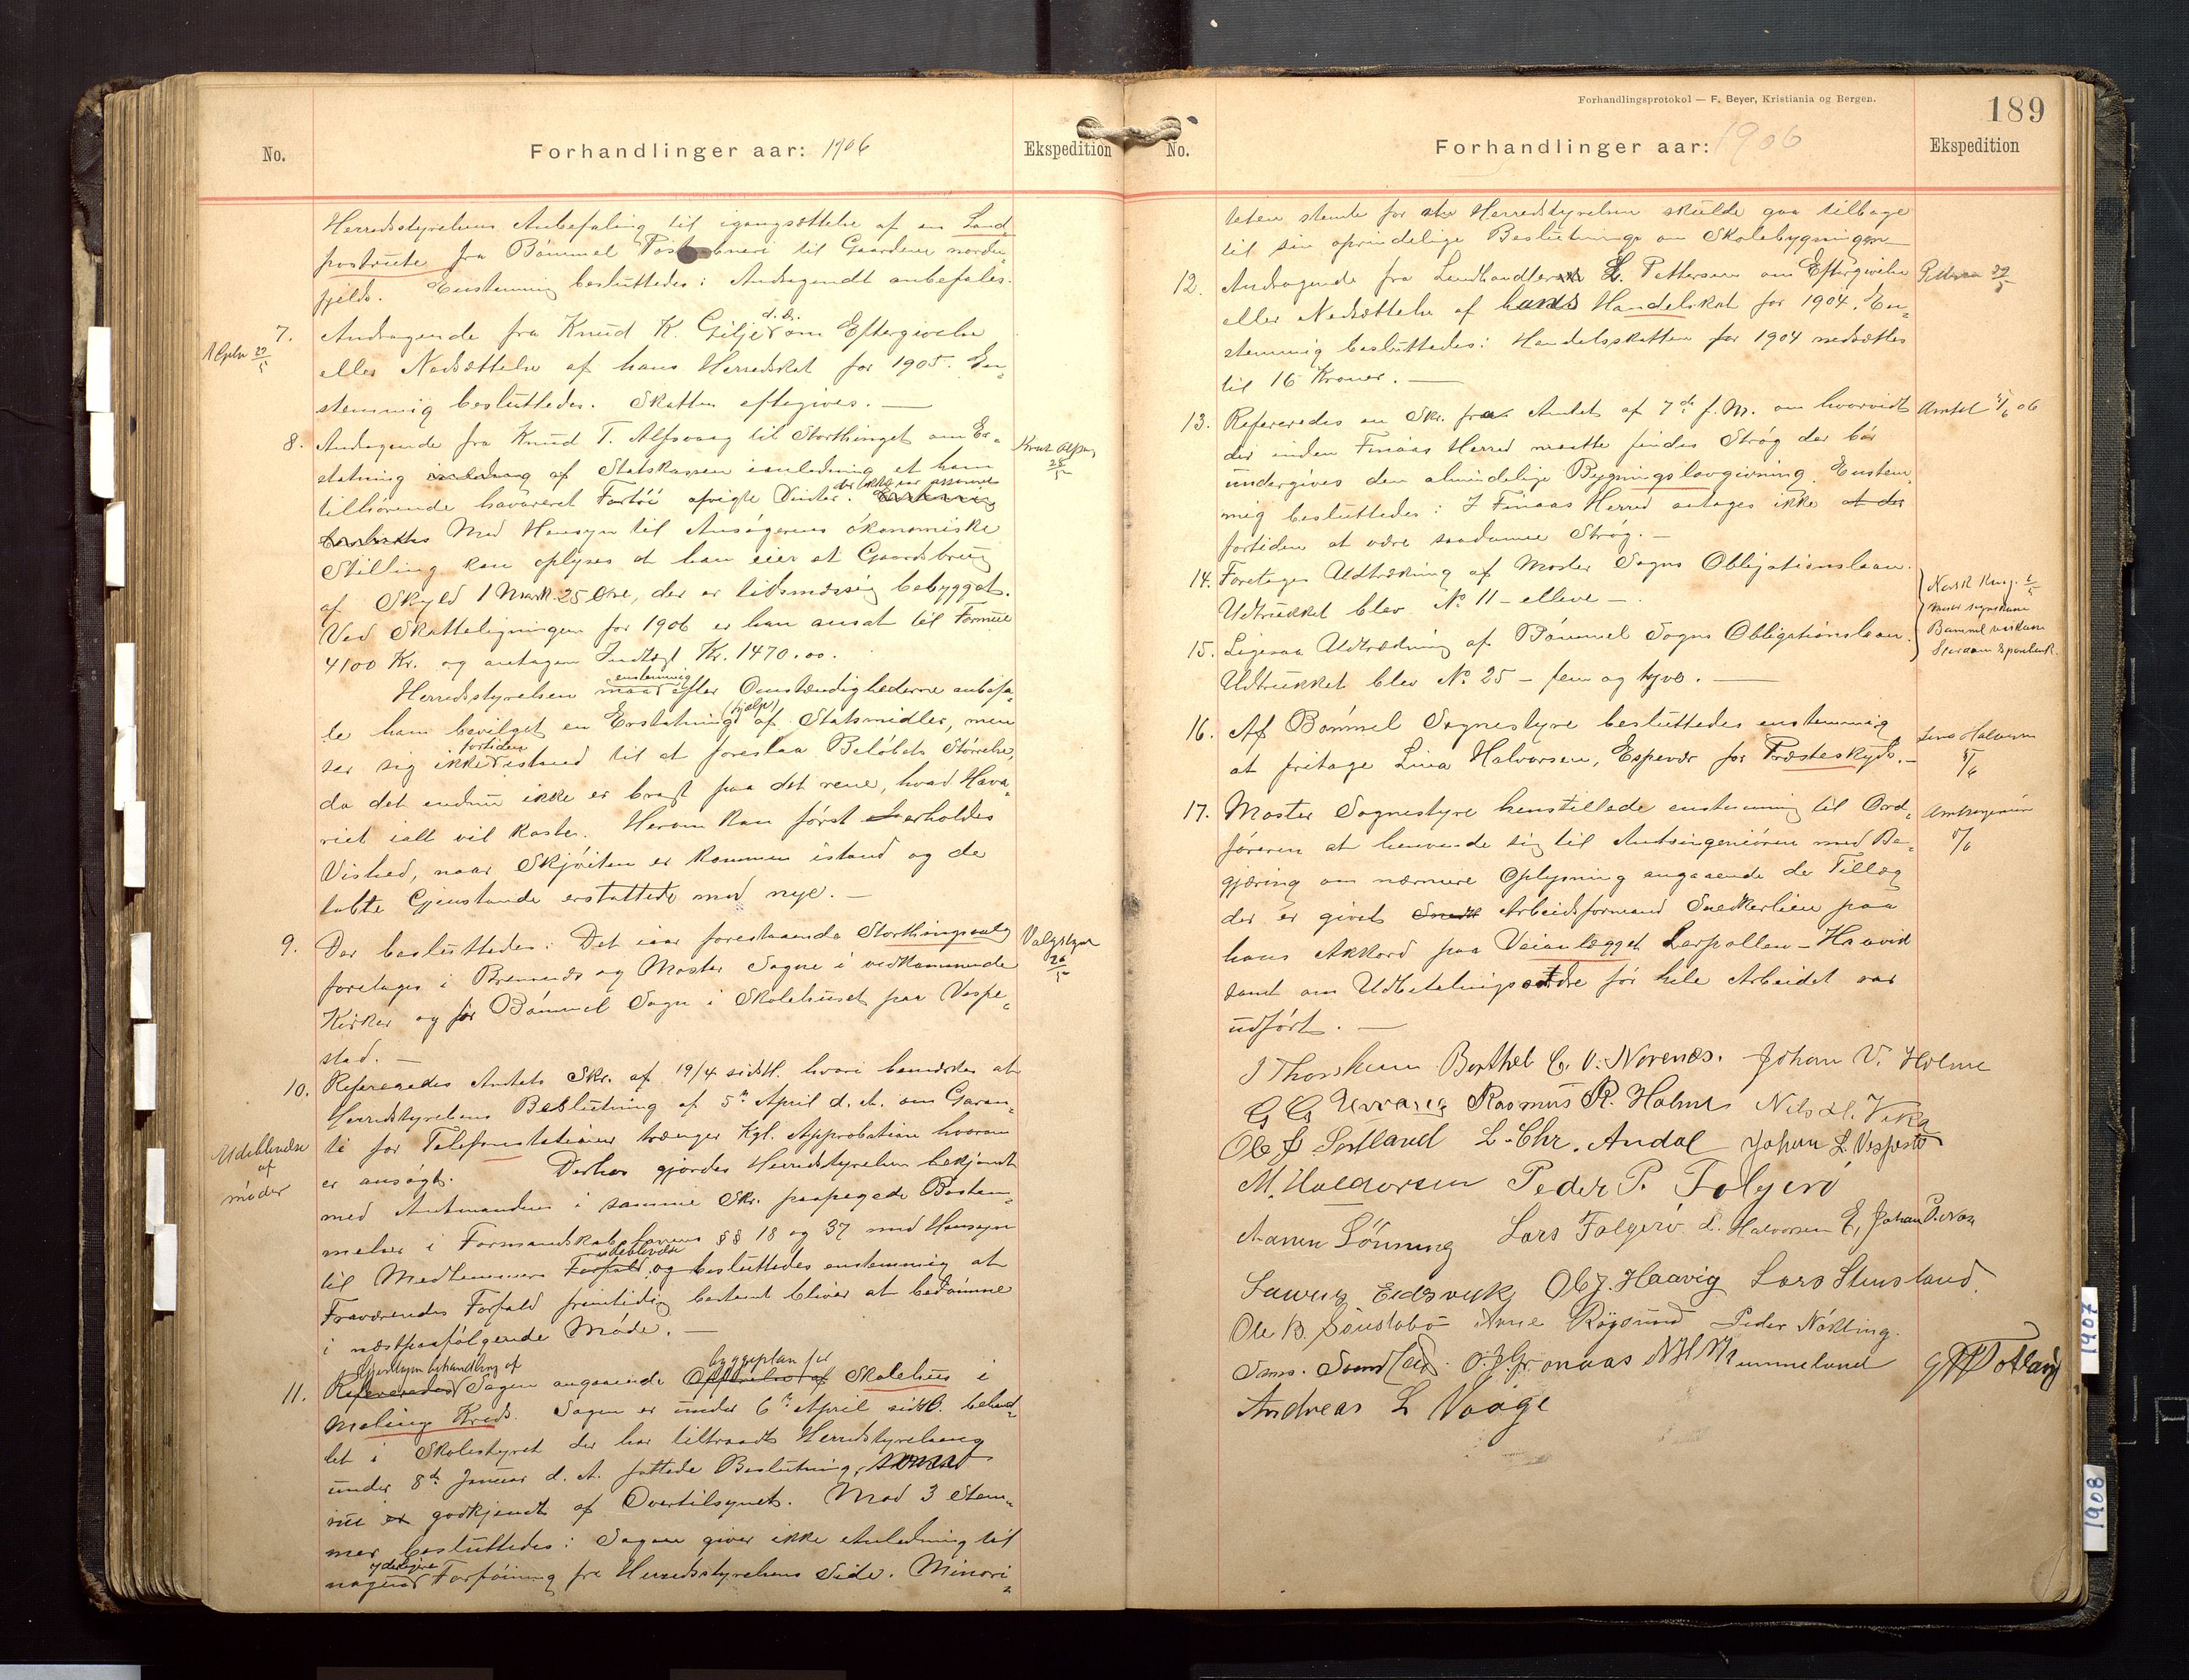 No.
Forhandlinger aar: 1906
Ekspedition
Herredsstyrelsens Anbefaling til igangsættelse af en Land
postrute fra Bømmel Postaabneri til Gaardene norden-
fjelds. Enstemmig besluttedes: Andragendt anbefales.
7. Andragende fra Knud K. Gilje d.æ. om Eftergivelse
22/5
eller Nedsættelse af hans Herredskat for 1905. En-
stemmig besluttedes. Skatten eftegives. —
8. Andragende fra Knud T. Alfsvaag til Storthinget om Er-
Knut Alfsv 28/5
statning af Statskassen ianledning et ham
tilhørende havareret Fartøi afvigte Vinter. der ikke var assureret
Med Hensyn til Ansøgerens økonomiske
Stilling kan oplyses at han eier et Gaardsbrug
af Skyld 1 Mark 25 Øre, der er tidsmæssig bebygget.
Ved Skatteligningen for 1906 er han ansat til Formue
4100 Kr. og antagen Indtægt Kr. 1470.00.
Herredsstyrelsen maa enstemmig efter Omstændighederne anbefa-
le ham bevilget en Erstatning (hjelp) af Statsmidler, men
ser sig ikke fortiden istand til at foreslaa Beløbets Størrelse,
da det endnu ikke er bragt paa det rene, hvad Hava-
riet ialt vil koste. Herom kan først erholdes
Vished, naar Skjøiten er kommen istand og de
tabte Gjenstande erstattede med nye. —
9. Der besluttedes: Det iaar forestaaende Storthingsvalg
Valgstyre 26/5
foretages i Bremnes og Moster Sogne i vedkommende
Kirker og for Bømmel Sogn i Skolehuset paa Vespe-
stad. —
10. Refereredes Amtets Skr. af 19/4 sidstl. hvori bemærkes at
Herredsstyrelsens Beslutning af 5te April d.A. om Garan-
ti for Telefonstationer trænger Kgl. Approbation hvorom
Udeblivelse
af
møder
er ansøgt. Derhos gjordes Herredsstyrelsen bekjendt
med Amtmandens i samme Skr. paapegede Bestem-
melser i Formandskabslovens §§ 18 og 37 med Hensyn
til Medlemmers Forfald udeblivelse og besluttedes enstemmig at
Fraværendes Forfald fremtidig bestemt bliver at bedømme
i næstpaafølgende Møde. —
11. Refereredes Gjentagen behandling af Sagen angaaende Opførelse af byggeplan for Skolehus i
Melings Kreds. Sagen er under 6te April sidstl. behand-
let i Skolestyret der har tiltraadt Herredsstyrelsens
under 8de Januar d.A. fattede Beslutning,
nu er godkjendt af Overtilsynet. Mod 3 Stem-
mer besluttedes: Sagen giver ikke Anledning til
nogen yderligere Forføining fra Herredsstyrelsens Side. Minori-
Forhandlingsprotokol — F. Beyer, Kristiania og Bergen.
189
No.
Forhandlinger aar: 1906
Ekspedition
teten stemte for at Herredsstyrelsen skulde gaa tilbage
til sin oprindelige Beslutning om Skolebygningen
12. Andragende fra Landhandler L. Pettersen om Eftergivelse
Pettersen 22/5
eller Nedsættelse af hans Handelskat for 1904. En-
stemmig besluttedes: Handelsskatten for 1904 nedsættes
til 16 Kroner. —
13. Refereredes en Skr. fra Amtet af 7de f.M. om hvorvidt
Amtet 5/6 06
der inden Finaas Herred maatte findes Strøg der bør
undergives den almindelige Bygningslovgivning. Enstem-
mig besluttedes: I Finaas Herred antages ikke at der
fortiden at være saadanne Strøg. —
14. Foretages Udtrækning af Moster Sogns Obligationslaan.
Udtrukket blev No 11 - elleve -
15. Ligesaa Udtrækning af Bømmel Sogns Obligationslaan.
Udtrukket blev No 25 - fem og tyve. —
16. Af Bømmel Sognestyre besluttedes enstemmig
Lina Halvorsen
at fritage Lina Halvorsen, Espevær for Præsteskyds. —
5/6
17. Moster Sognestyre henstillede enstemmig til Ord-
Amtsingeniør
føreren at henvende sig til Amtsingeniøren med Be-
5/6
gjæring om nærmere Oplysning angaaende de Tillæg
der er givet Arbeidsformand Snekkerlien paa
hans Akkord paa Veianlægget Lerpollen - Haavik
samt om Udbetalingsordre før hele Arbeidet var
udført. —
Berthel C. V. Norenæs. Johan V. Holme
Rasmus R. Holme Nils H. Vika
Ole J Sortland L. Chr. Andal Johan L. Vespestad
M. Halvorsen Peder P. Folgerø
Aamen Lønning Lars Folgerø L. Halvorsen E,
Laurits Eidsvik Ole J. Haavig Lars Stensland.
Ole B. Sønstabø Arne Røgsund Peder Nøkling.
N H Mummeland G H Totland
Andreas L Vaage
1907
1908